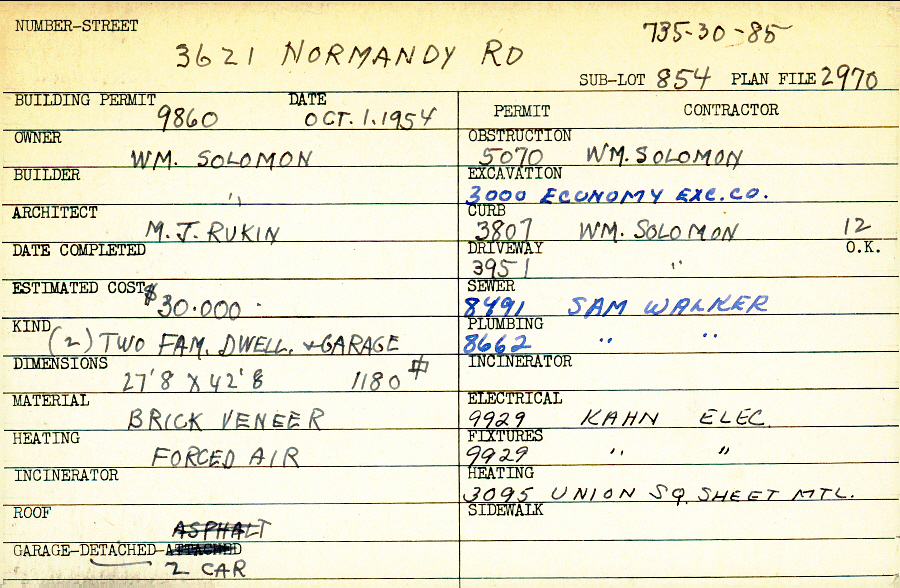 NUMBER-STREET 735-30-85
3621 NORMANDY RD
SUB-LOT 854 PLAN FILE 2970
BUILDING PERMIT DATE
9860 OCT. 1. 1954
OWNER
WM. SOLOMON
BUILDER
"
ARCHITECT
M. J. RUKIN
DATE COMPLETED
ESTIMATED COST
$30.000
KIND
(2) TWO FAM. DWELL. & GARAGE
DIMENSIONS
27'8 X 42'8 1180 #
MATERIAL
BRICK VENEER
HEATING
FORCED AIR
INCINERATOR
ROOF
ASPHALT
GARAGE-DETACHED-ATTACHED
2 CAR
PERMIT CONTRACTOR
OBSTRUCTION
5070 WM. SOLOMON
EXCAVATION
3000 ECONOMY EXC. CO.
CURB
3807 WM. SOLOMON 12
DRIVEWAY O.K.
3951 "
SEWER
8491 SAM WALKER
PLUMBING
8662 " "
INCINERATOR
ELECTRICAL
9929 KAHN ELEC.
FIXTURES
9929 " "
HEATING
3095 UNION SQ. SHEET MTL.
SIDEWALK